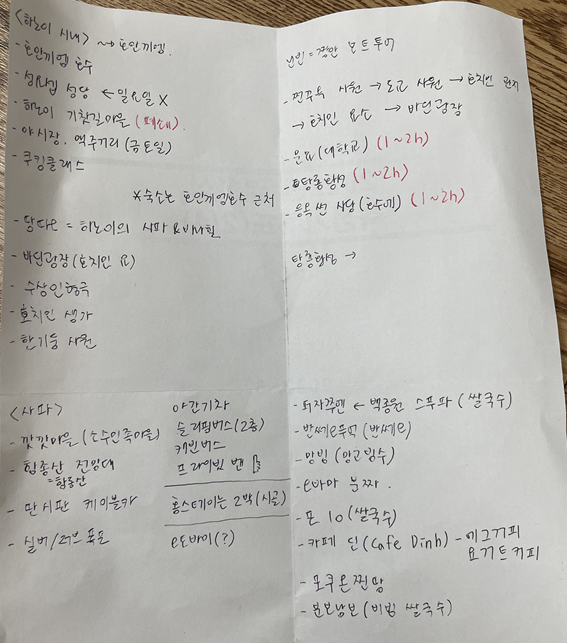 <하노이 시내> ~> 호안끼엠.
- 호안끼엠 호수
- 성요셉 성당 ← 일요일 X
- 하노이 기찻길마을 (폐쇄)
- 야시장, 맥주거리 (금토일)
- 쿠킹클래스
*숙소는 호안끼엠호수 근처
- 땀다오 = 하노이의 사파
- 바딘광장 (호치민 묘)
- 수상인형극
- 호치민 생가
- 한기둥 사원
닌빈 = 짱안 보트 투어
- 쩐꾸옥 사원 → 도교 사원 → 호치민 관저
→ 호치민 묘소 → 바딘광장
- 문묘 (대학교) (1~2h)
- 탕롱황성 (1~2h)
- 응옥썬 사당 (호수에) (1~2h)
탕롱황성 →
<사파>
- 깟깟마을 (소수민족마을)
- 함종산 전망대
= 함롱산
- 판시판 케이블카
- 실버/러브 폭포
야간기차
슬리핑버스 (2층)
캐빈버스
프라이빗 밴
홈스테이는 2박 (시골)
오토바이(?)
- 퍼자쭈엔 ← 백종원 스푸파 (쌀국수)
- 반쎄오 (반쎄오)
- 망빙 (망고빙수)
- 오바마 분짜.
- 포 10 (쌀국수)
- 카페 딘 (Cafe Dinh) - 에그커피
요거트커피
- 꽌넴
- 분보남보 (비빔 쌀국수)